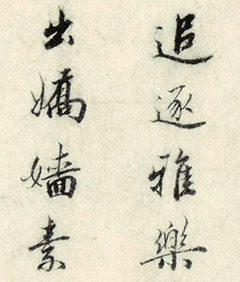 追逐雅樂
出嬌嬙素